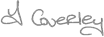 J Coverley